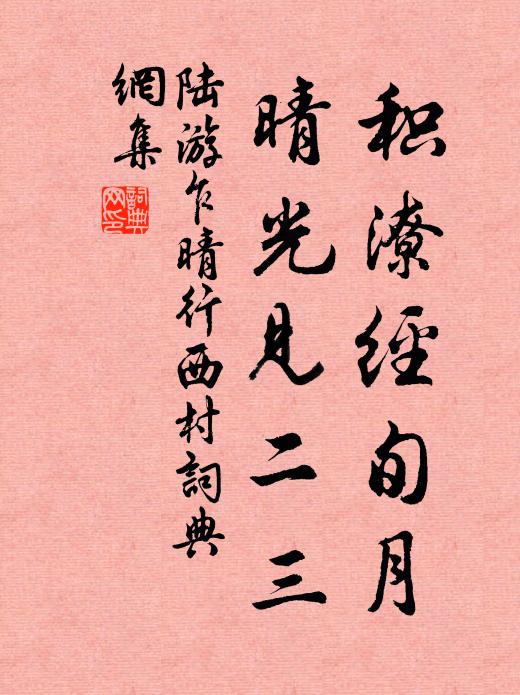 积潦經旬月
晴光見二三
陆游乍晴行西村詞典
網集
詞典
网印